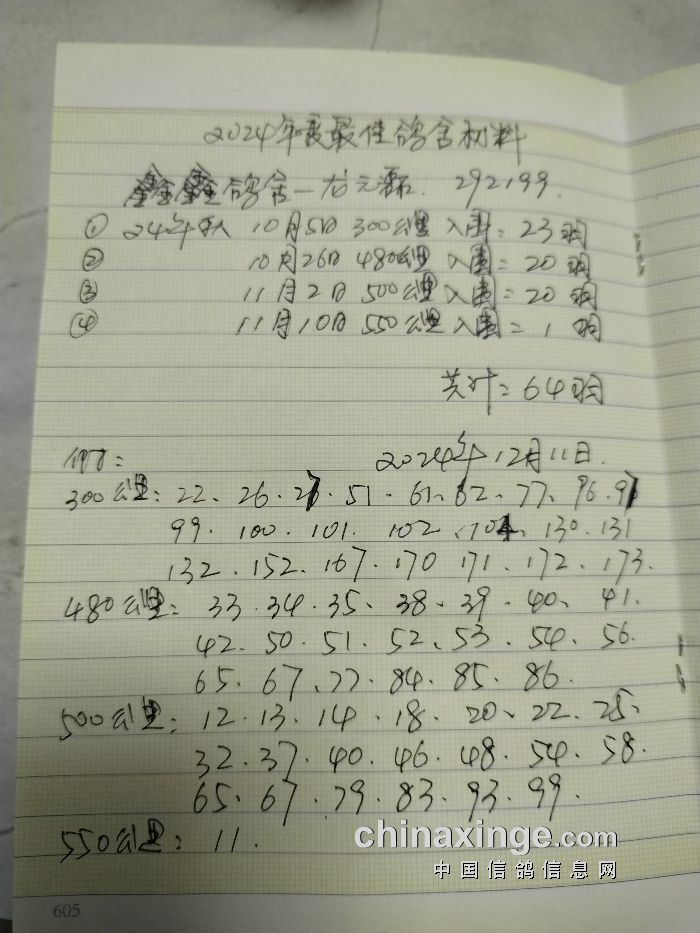 2024年度最佳鸽舍材料
鑫鑫鸽舍—龙元磊. 292199.
① 24年秋 10月5日 300公里 入围: 23羽
② 10月26日 480公里 入围: 20羽
③ 11月2日 500公里 入围: 20羽
④ 11月10日 550公里 入围= 1羽
共计: 64羽
2024年12月11日.
300公里: 22、26、27、51、61、62、77、96、97
99、100、101、102、104、130、131
132、152、167、170 171、172、173.
480公里: 33、34、35、38、39、40、41.
42、50、51、52、53、54、56.
65、67、77、84、85、86.
500公里: 12、13、14、18、20、22、25.
32、37、40、46、48、54、58.
65、67、79、83、93、99.
550公里: 11.
chinaxinge.com
中国信鸽信息网
605